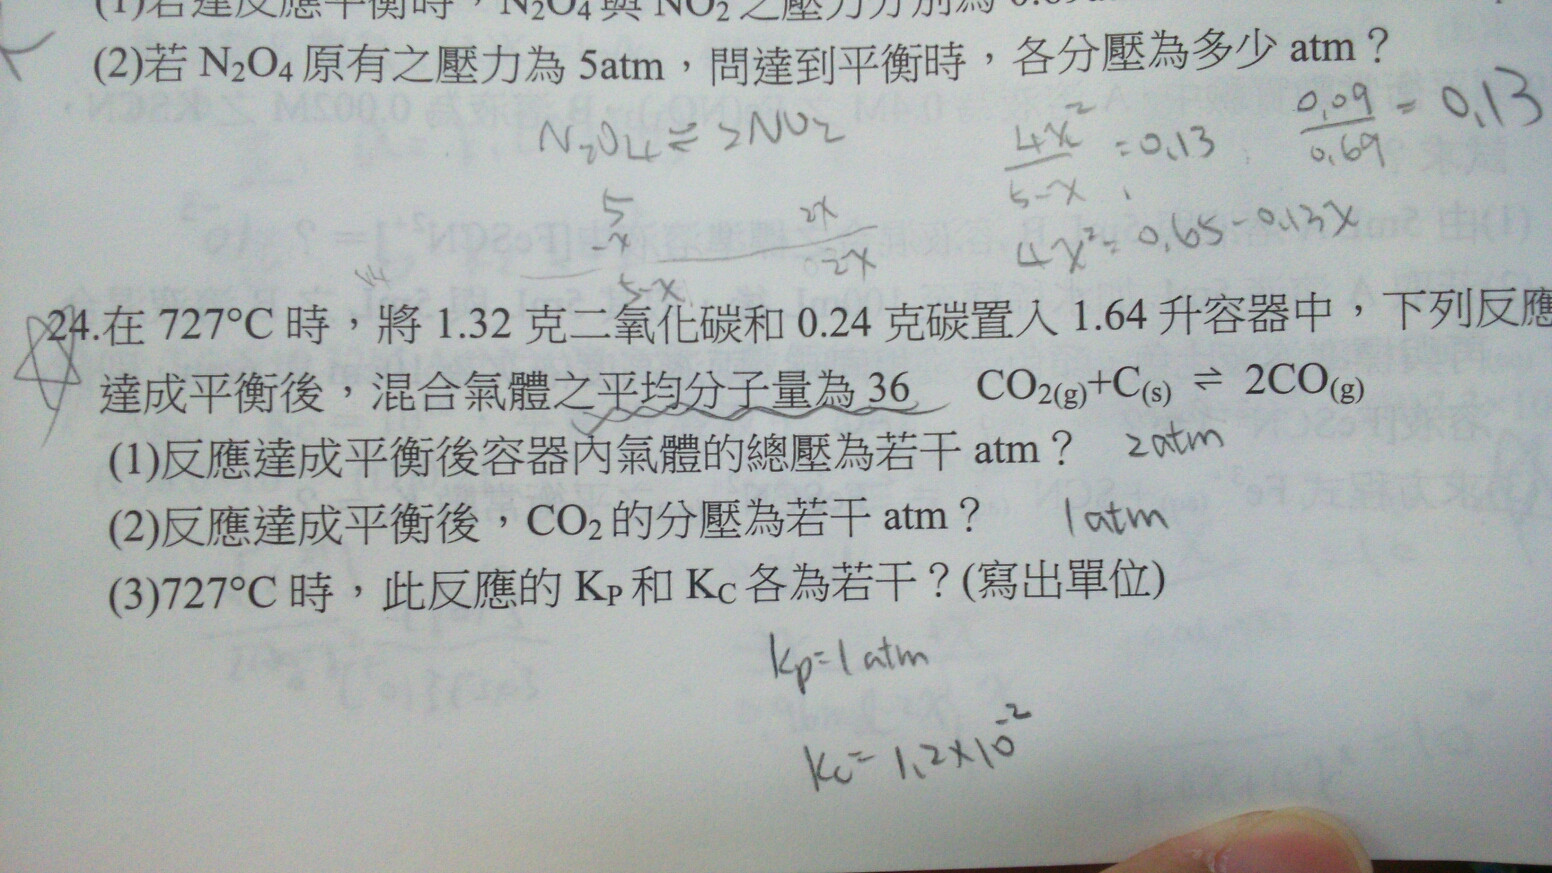 (1)若達反應平衡時，N₂O₄與 NO₂ 之壓力分別為 0.69a
(2)若 N₂O₄ 原有之壓力為 5atm，問達到平衡時，各分壓為多少 atm？
N₂O₄ ⇌ 2NO₂
4x²/5-x = 0.13
0.09/0.69 = 0.13
5
-x 2x
5-x 2x
4x² = 0.65-0.13x
24.在 727°C 時，將 1.32 克二氧化碳和 0.24 克碳置入 1.64 升容器中，下列反應
達成平衡後，混合氣體之平均分子量為 36 CO₂(g)+C(s) ⇌ 2CO(g)
(1)反應達成平衡後容器內氣體的總壓為若干 atm？ 2atm
(2)反應達成平衡後，CO₂ 的分壓為若干 atm？ 1atm
(3)727°C 時，此反應的 KP 和 KC 各為若干？(寫出單位)
Kp=1atm
Kc=1.2×10⁻²